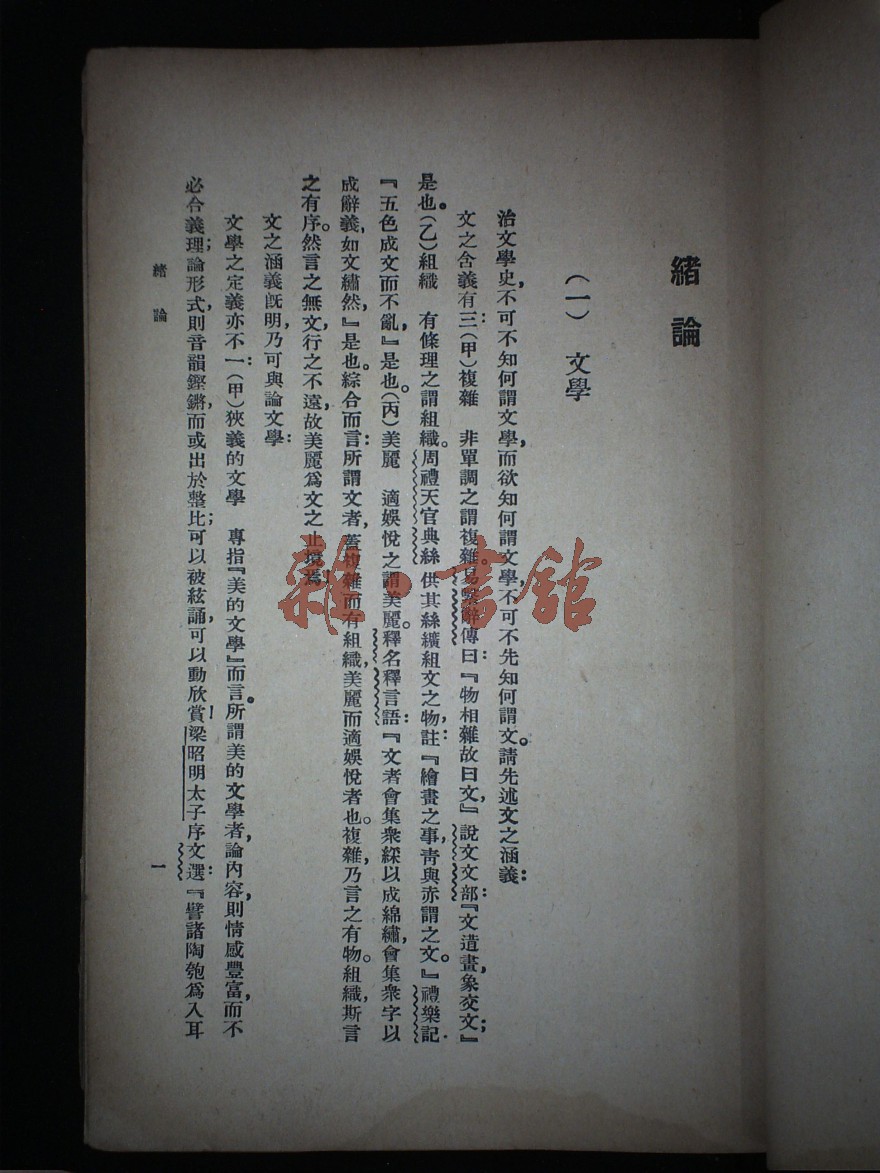 緒論
(一) 文學
治文學史,不可不知何謂文學,而欲知何謂文學,不可不先知何謂文。請先述文之涵義:
文之含義有三:(甲)複雜 非單調之謂複雜。易繫辭傳曰:『物相雜故曰文,』說文文部:『文造畫,象交文;』
是也。(乙)組織 有條理之謂組織。周禮天官典絲供其絲纊組文之物,註:『繪畫之事,靑與赤謂之文。』禮樂記
『五色成文而不亂,』是也。(丙)美麗 適娛悅之謂美麗。釋名釋言語:『文者會集衆綵以成綿繡,會集衆字以
成辭義,如文繡然,』是也。綜合而言:所謂文者,蓋複雜而有組織,美麗而適娛悅者也。複雜,乃言之有物。組織,斯言
之有序。然言之無文,行之不遠,故美麗爲文之止境焉!
文之涵義旣明,乃可與論文學:
文學之定義亦不一:(甲)狹義的文學 專指『美的文學』而言。所謂美的文學者,論內容,則情感豐富,而不
必合義理;論形式,則音韻鏗鏘,而或出於整比;可以被絃誦,可以動欣賞!梁昭明太子序文選:『譬諸陶匏爲入耳
緒論
一
雜·書館